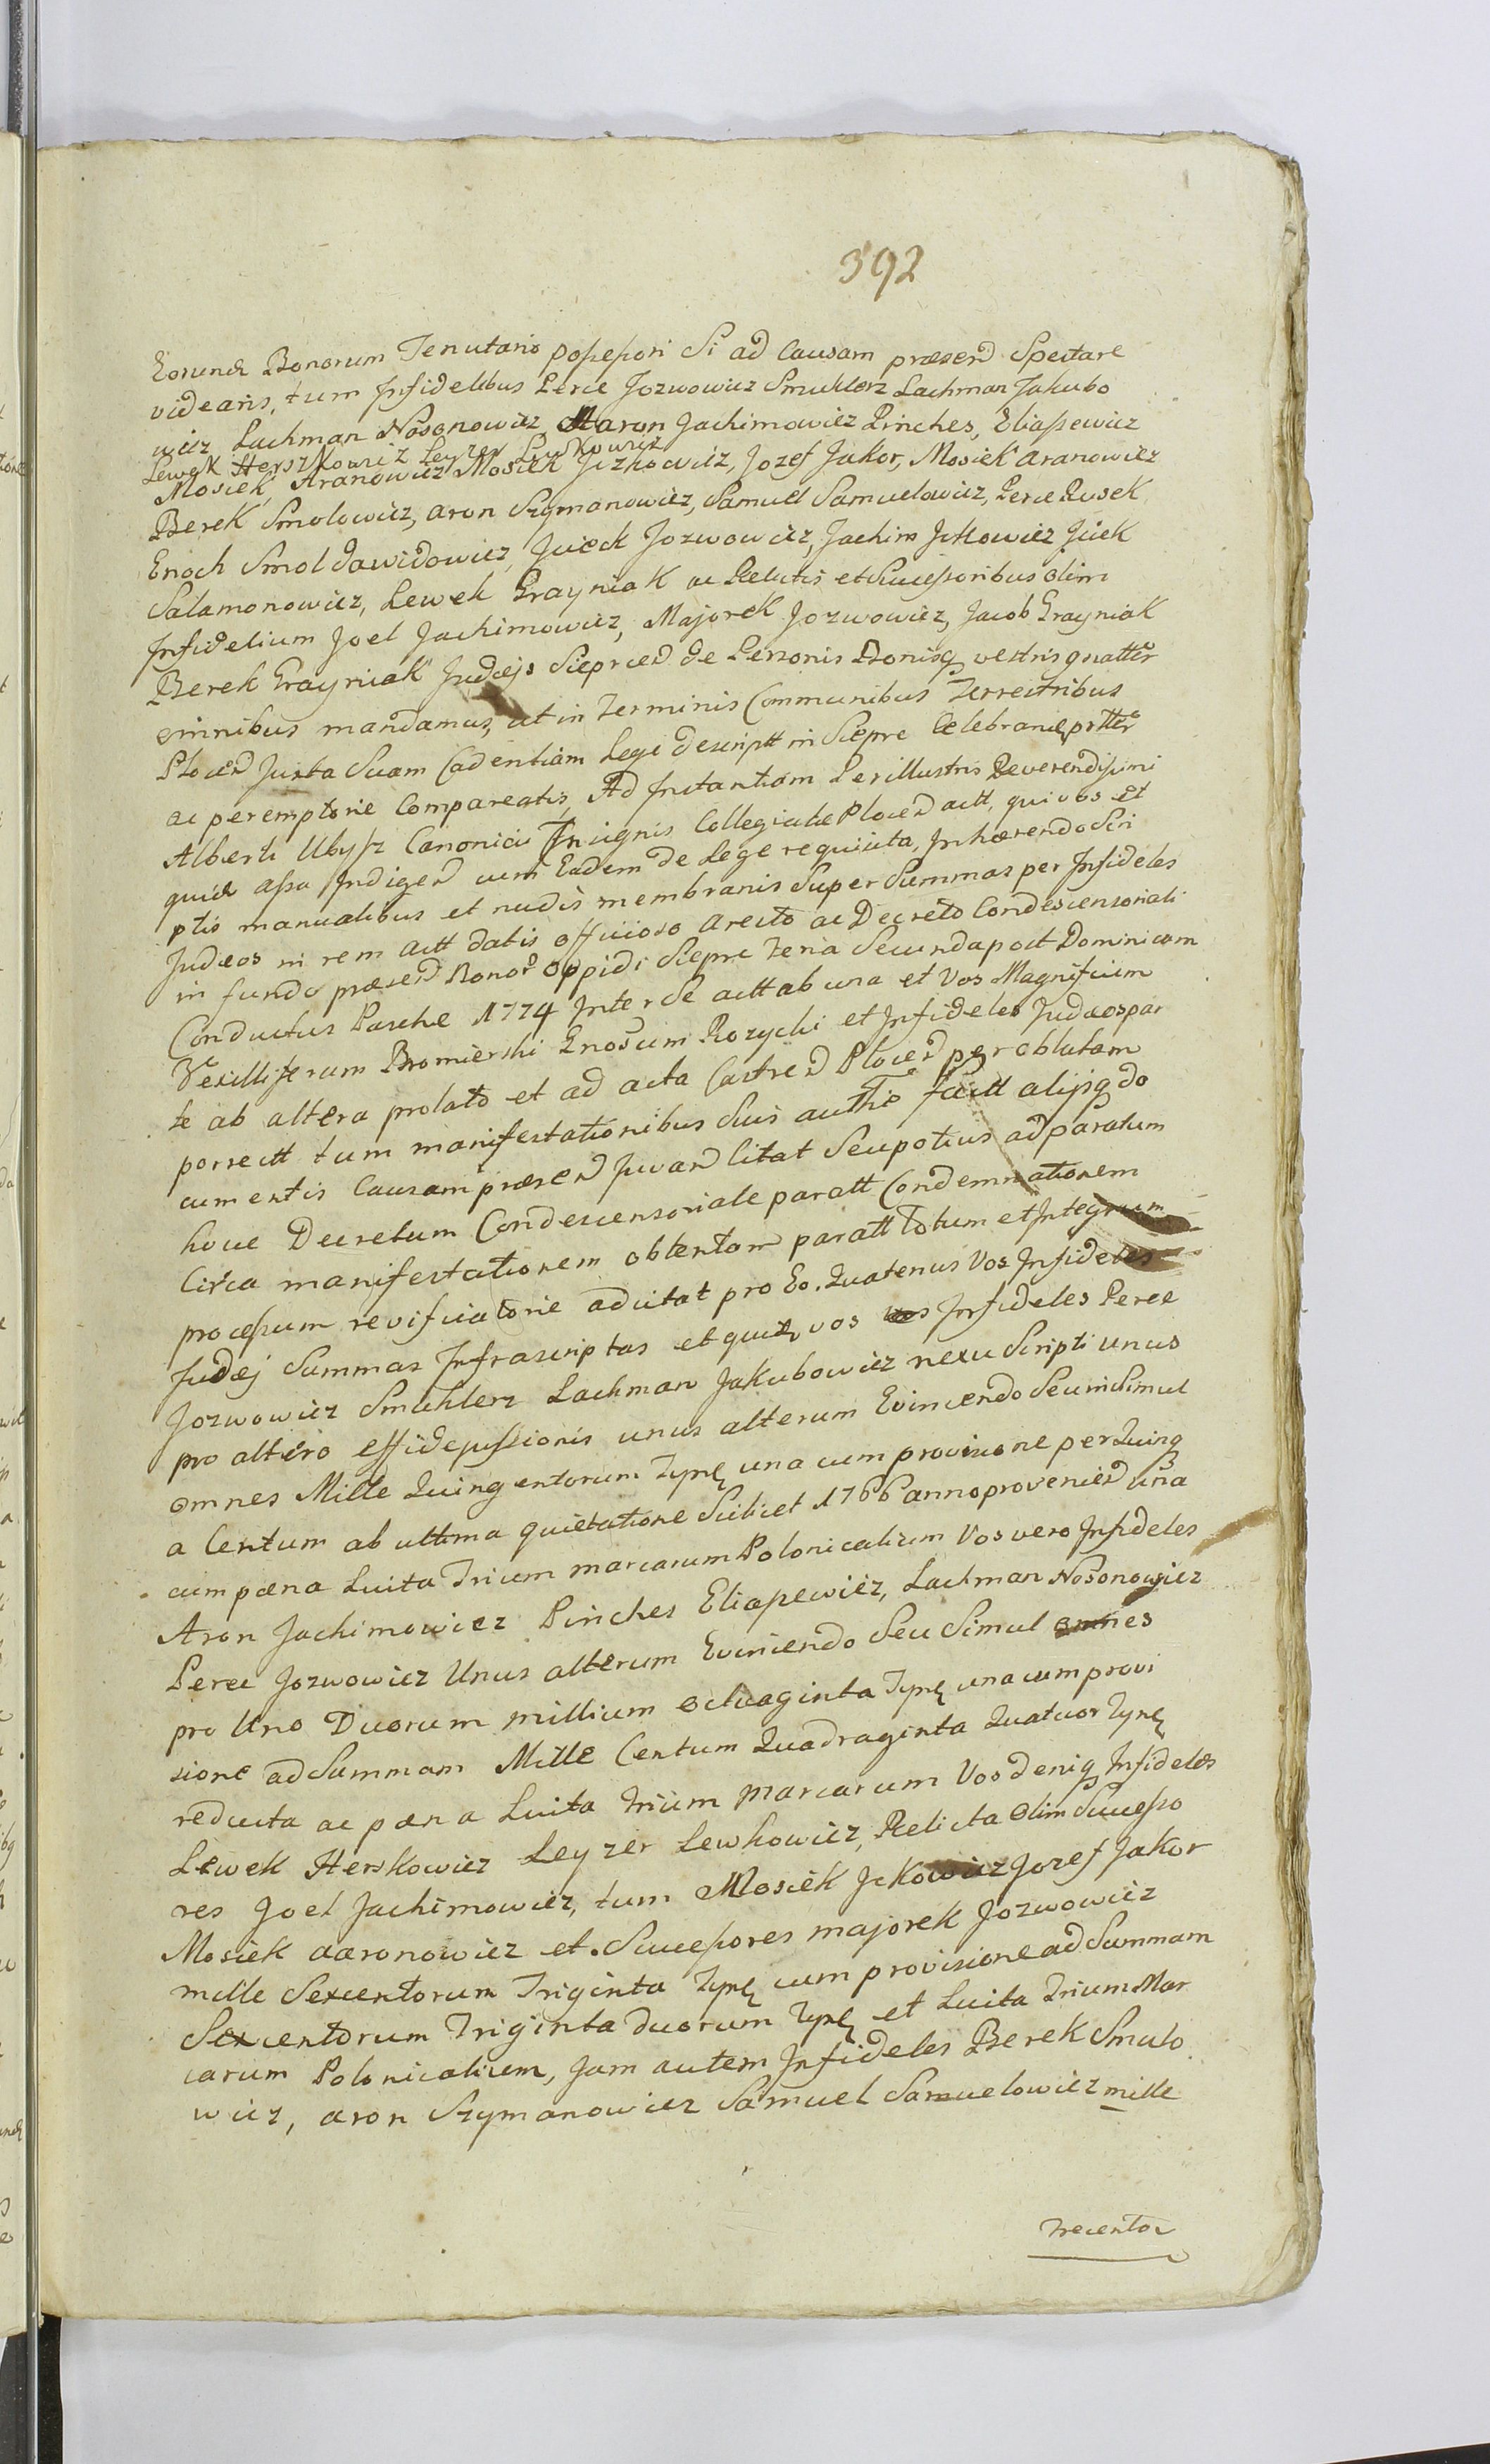 392
Eorund Bonorum Tenutario possessori Si ad Causam præsend Spectare
videaris, tum Infidelibus Perec Jozwowicz Smuklerz Lachman Jakubo
wicz Lachman Nosonowicz Aaron Jachimowicz Pinches, Eliassewicz
Lewek Herszkowicz Leyzer Lewkowicz
Mosiek, Aranowicz Mosiek Jczkowicz, Jozef Jakor, Mosiek aranowicz
Berek Smolowicz, aron Szymanowicz, Samuel Samuelowicz, Perec Rusek
Enoch Smol dawidowicz, Jcieck Jozwowicz, Jachim Jckowicz Jciek
Salamonowicz, Lewek Grayniak ac Relictis et Successoribus olim
Infidelium Joel Jachimowicz, Majorek Jozwowicz, Jacob Grayniak
Berek Grayniak Judæjs Sieprced de Personis Bonisq vestris quatter
omnibus mandamus, ut in Terminis Communibus Terrestribus
Plocen Juxta Suam Cadentiam Lege descriptt in Siepre Celebrand prtter
ac peremptorie Compareatis, Ad Instantiam Perillustris Reverendissimi
Alberti Ubysz Canonici Insignis Collegiatæ Plocen actt, qui vos et
quid assa Indigen cum Eadem de Lege requisita, Inhærendo Scri
ptis manualibus et nudis membranis Super Summas per Infideles
Judæos in rem actt datis officioso aresto ac Decreto Condescensoriali
in fundo præsen Bonor Oppidi Siepre Feria Secunda post Dominicam
Conductus Paschæ 1774 Inter Se actt ab una et Vos Magnificum
Vexilliferum Bromierski Gnosum Rozycki et Infideles Judæos par
te ab altera prolato et ad acta Castren Plocen per oblatam
porrectt tum manifestationibus Suis authe factt alijsq do
cumentis Causam præsen Juvan Citat Seu potius ad paratum
hocce Decretum Condescensoriale paratt Condemnationem
Circa manifestationem obtentam paratt Totum et Integrum
processum revificatorie adcitat pro Eo. Quatenus Vos Infideles
Judæj Summas Infrascriptas et quid vos Infideles Perec
Jozwowicz Smuklerz Lachman Jakubowicz nexu Scripti unus
pro altero effidejussionis unus alterum Evincendo Seu in Simul
omnes Mille Quingentorum Tynf una cum provisione per Quinq
a Centum ab ultima quietatione Scilicet 1766 anno provenien una
cum pæna Luita Trium marcarum Polonicalium Vos vero Infideles
Aron Jachimowicz Pinches Eliassewicz, Lachman Nosonowicz
Perec Jozwowicz Unus alterum Evincendo Seu Simul omnes
pro Uno Duorum millium octuaginta Tynf una cum provi
sione ad Summam Mille Centum Quadraginta Quatuor Tynf
reducta ac pæna Luita Trium Marcarum Vos deniq Infideles
Lewek Herskowicz Leyzer Lewkowicz, Relicta olim Successo
res Joel Jachimowicz, tum Mosiek Jckowicz Jozef Jakor
Mosiek aaronowicz et Successores majorek Jozwowicz
mille Sexcentorum Triginta Tynf cum provisione ad Summam
Sexcentorum Triginta duorum Tynf et Luita Trium Mar
carum Polonicalium, Jam autem Infideles Berek Smulo
wicz, aron Szymanowicz Samuel Samuelowicz mille
Trecentor